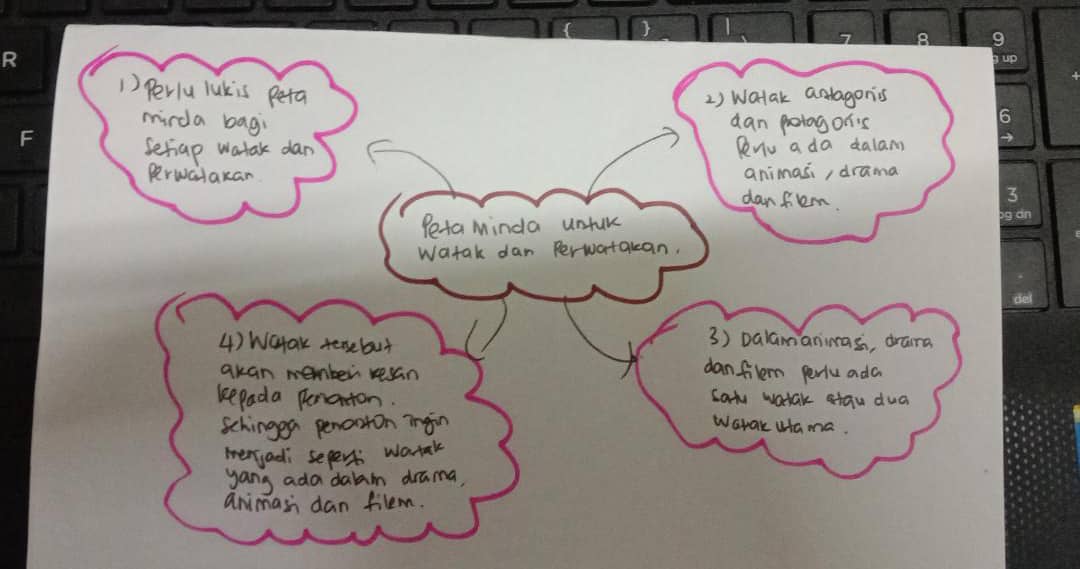 Peta Minda untuk
Watak dan Perwatakan.
1) Perlu lukis peta
minda bagi
setiap watak dan
Perwatakan.
2) Watak antagonis
dan potagonis
Perlu ada dalam
animasi, drama
dan filem.
3) Dalam animasi, drama
dan filem perlu ada
satu watak atau dua
watak utama.
4) Watak tersebut
akan memberi kesan
kepada penonton.
Sehingga penonton ingin
menjadi seperti watak
yang ada dalam drama,
animasi dan filem.
R
F
{
}
|
\
7
8
9
g up
6
→
3
pg dn
.
del
+